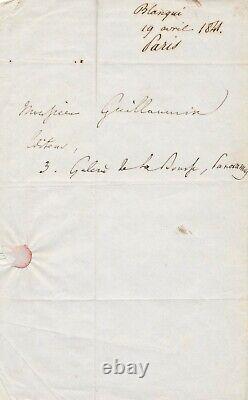 Blanqui
19 avril 1841.
Paris
Monsieur Guillaumin
éditeur,
3. Galerie de la Bourse, Panoramas
ebay